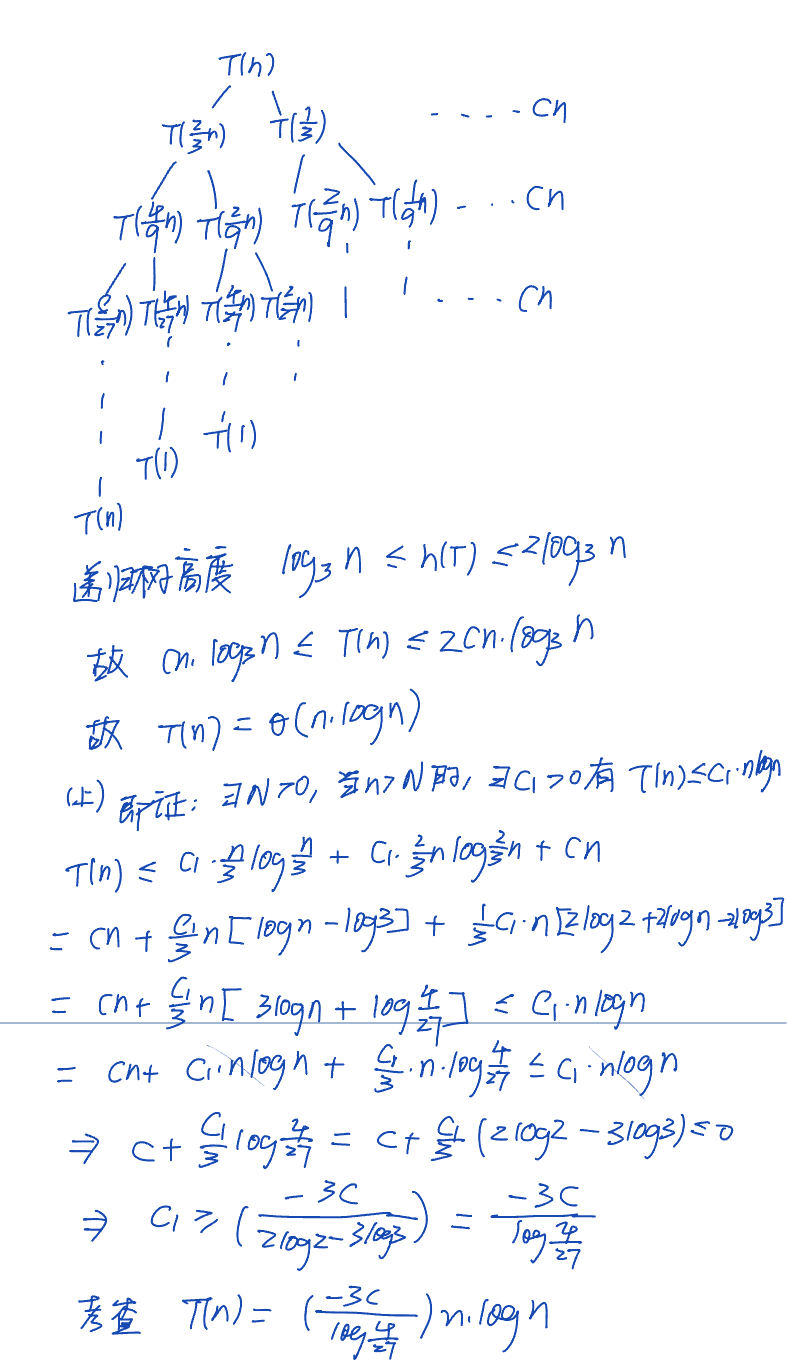 T(n)
T(2/3 n) T(1/3) ···· cn
T(4/9 n) T(2/9 n) T(2/9 n) T(1/9 n) - ·· cn
T(8/27 n) T(4/27 n) T(4/27 n) T(2/27 n) ···· cn
T(1)
T(1)
T(n)
递归树高度 log₃ n ≤ h(T) ≤ 2log₃ n
故 cn·log₃n ≤ T(n) ≤ 2cn·log₃ n
故 T(n) = θ(n·logn)
(上) 即证: ∃N>0, 当n>N时, ∃C₁>0有 T(n)≤C₁·nlogn
T(n) ≤ C₁·n/3 log n/3 + C₁·2/3 n log 2/3 n + cn
= cn + C₁/3 n[logn-log3] + 1/3 C₁·n[2log2+2logn-2log3]
= cn + C₁/3 n[3logn + log 4/27] ≤ C₁·nlogn
= cn+ C₁·nlogn + C₁/3·n·log 4/27 ≤ C₁·nlogn
⇒ c + C₁/3 log 4/27 = c + C₁/3 (2log2-3log3)≤0
⇒ C₁ ≥ (-3c/(2log2-3log3)) = -3c/(log 4/27)
考查 T(n) = (-3c/(log 4/27)) n·logn